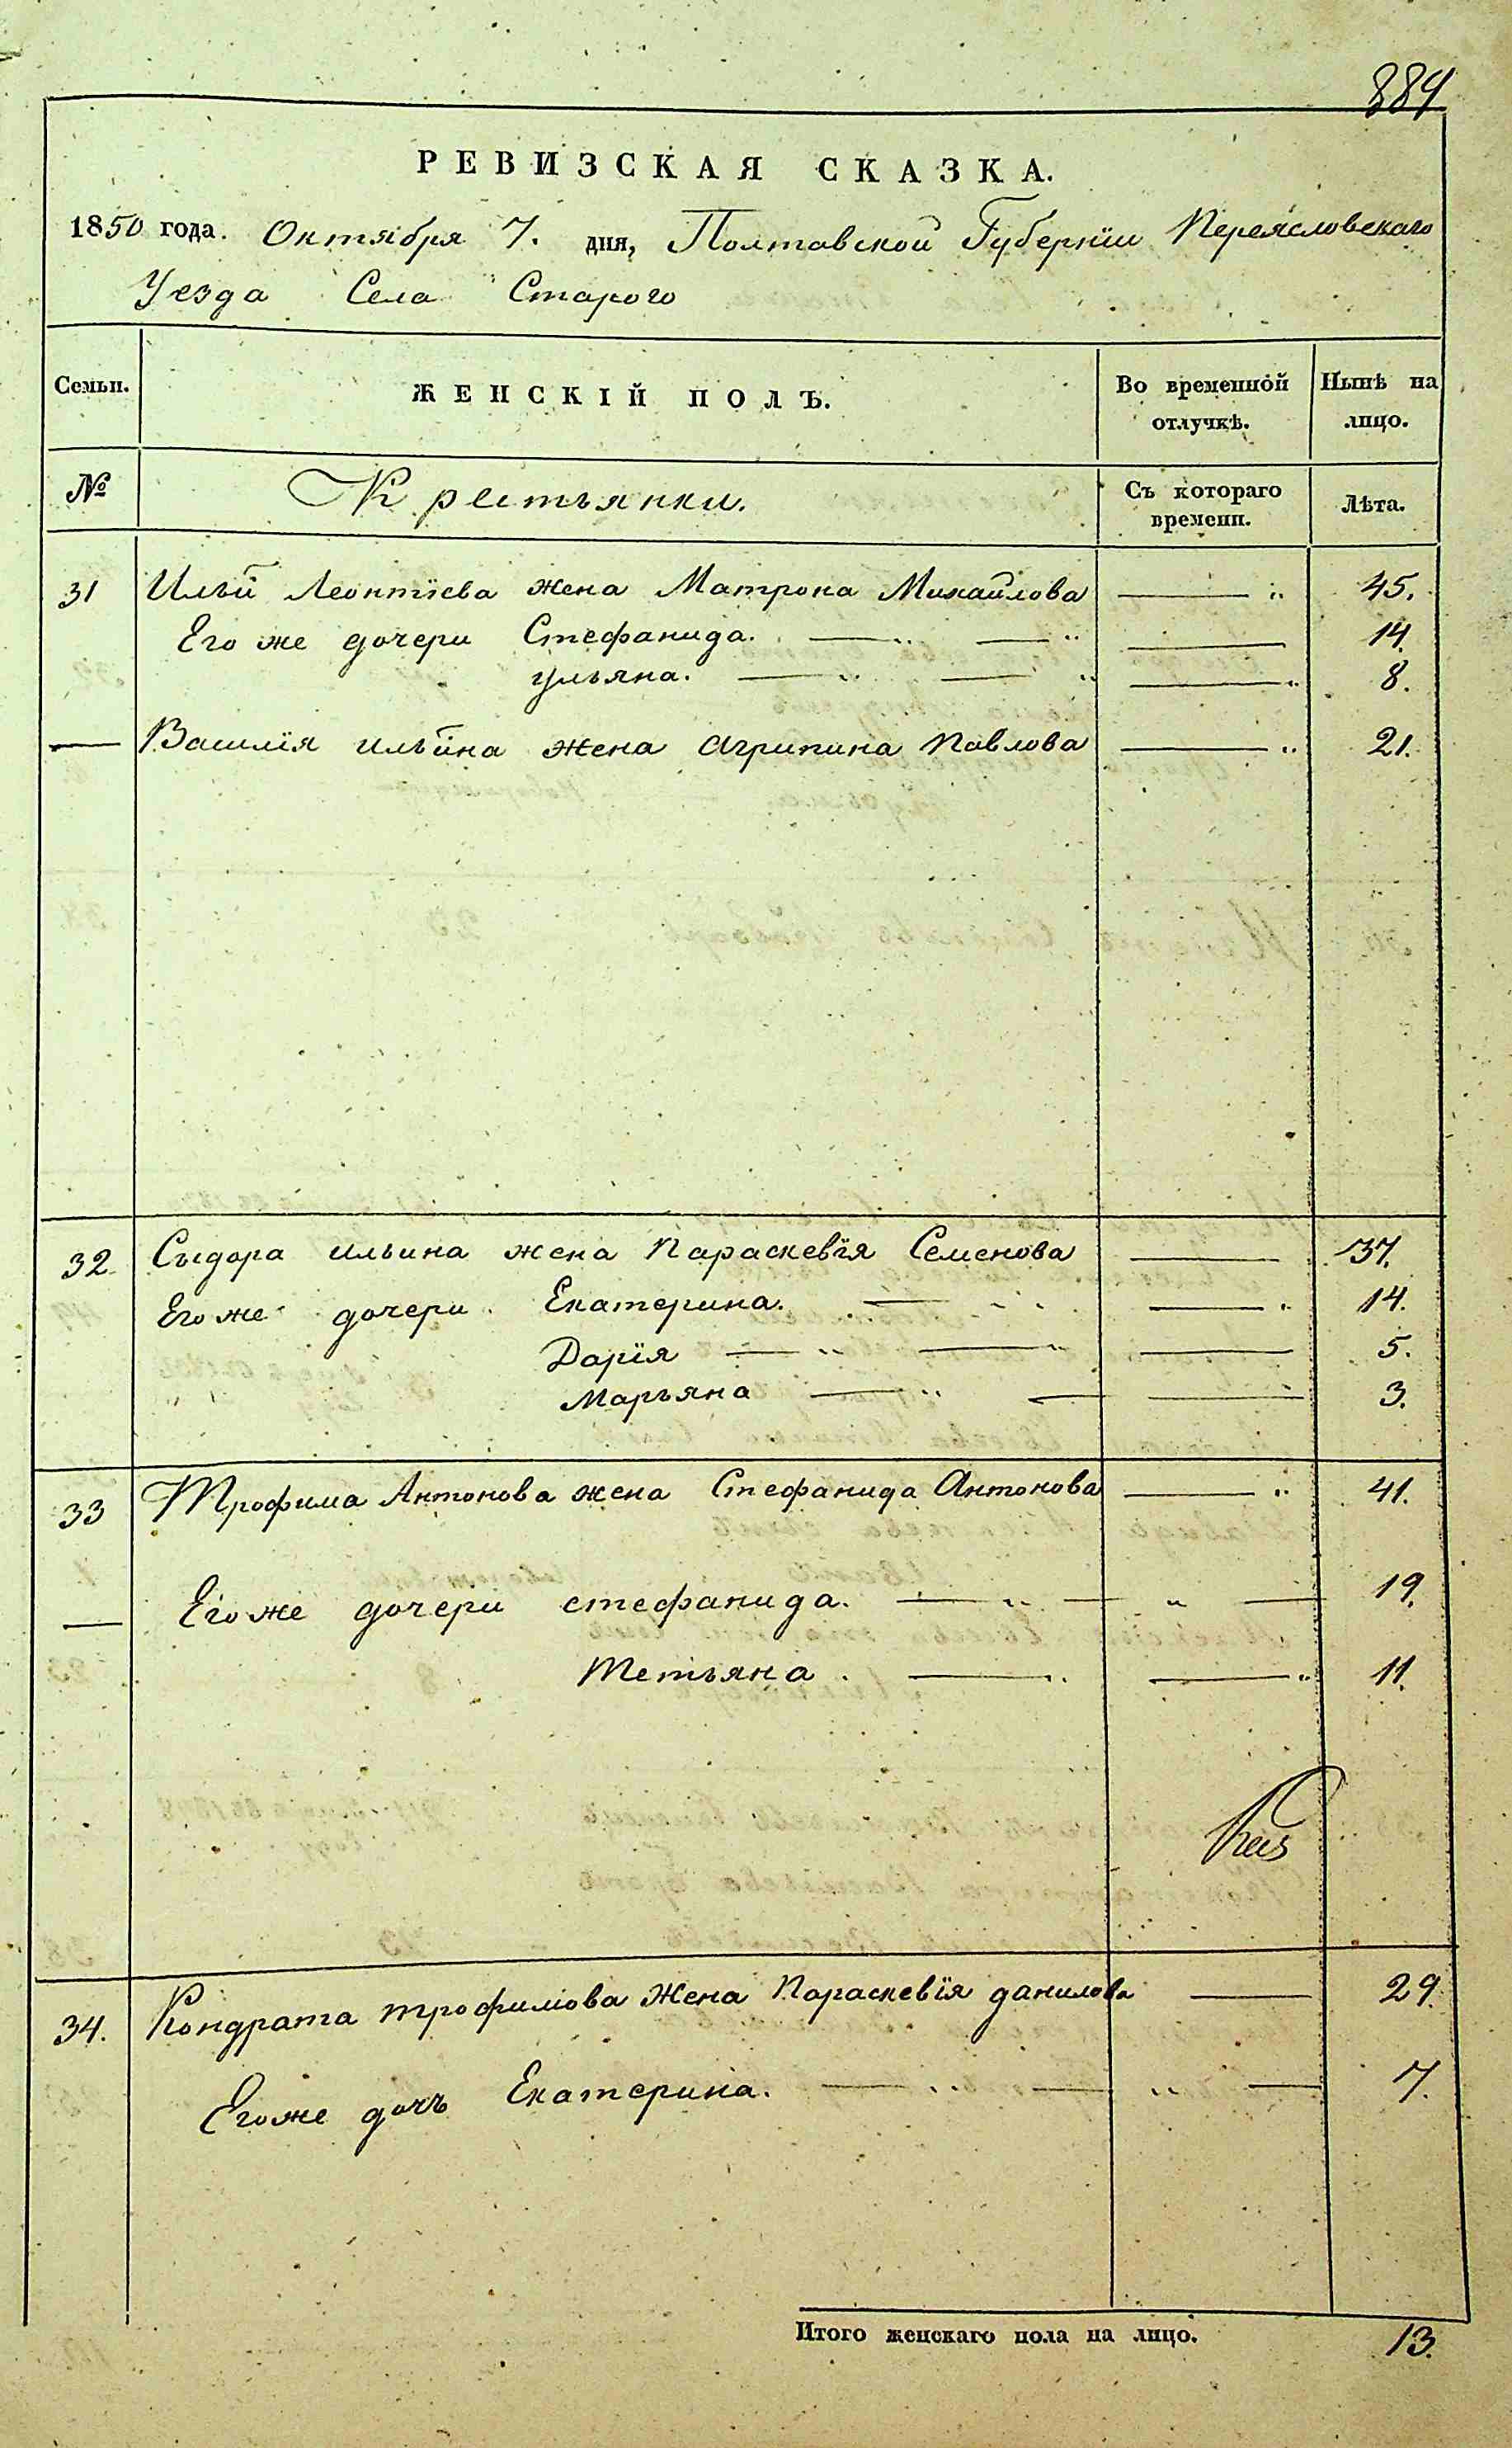 884
РЕВИЗСКАЯ СКАЗКА.
1850 года. Октября 7. дня, Полтавской Губернїи Переясловскаго
Уезда Села Старого
Семьи. ЖЕНСКІЙ ПОЛЪ. Во временной отлучкѣ. Нынѣ на лицо.
№ Крестьянки. Съ котораго времени. Лѣта.
31 Ильи Леонтїева жена Матрона Михайлова — " 45.
Его же дочери Стефанида. — " — " — 14.
Ульяна. — " — " — " 8.
— Василїя Ильина жена Агрипина Павлова — " 21.
32 Сыдора Ильина жена Параскевїя Семенова — 37.
Его же дочери Екатерина. — " — " 14.
Дарїя — " — " — 5.
Марьяна — " — — 3.
33 Трофима Антонова жена Стефанида Антонова — " 41.
— Его же дочери стефанида. — " — " — 19.
Тетьяна. — " — " 11.
34. Кондрата трофимова жена Параскевїя данилова — 29.
Его же дочь Екатерина. — " — " — 7.
Итого женскаго пола на лицо. 13.